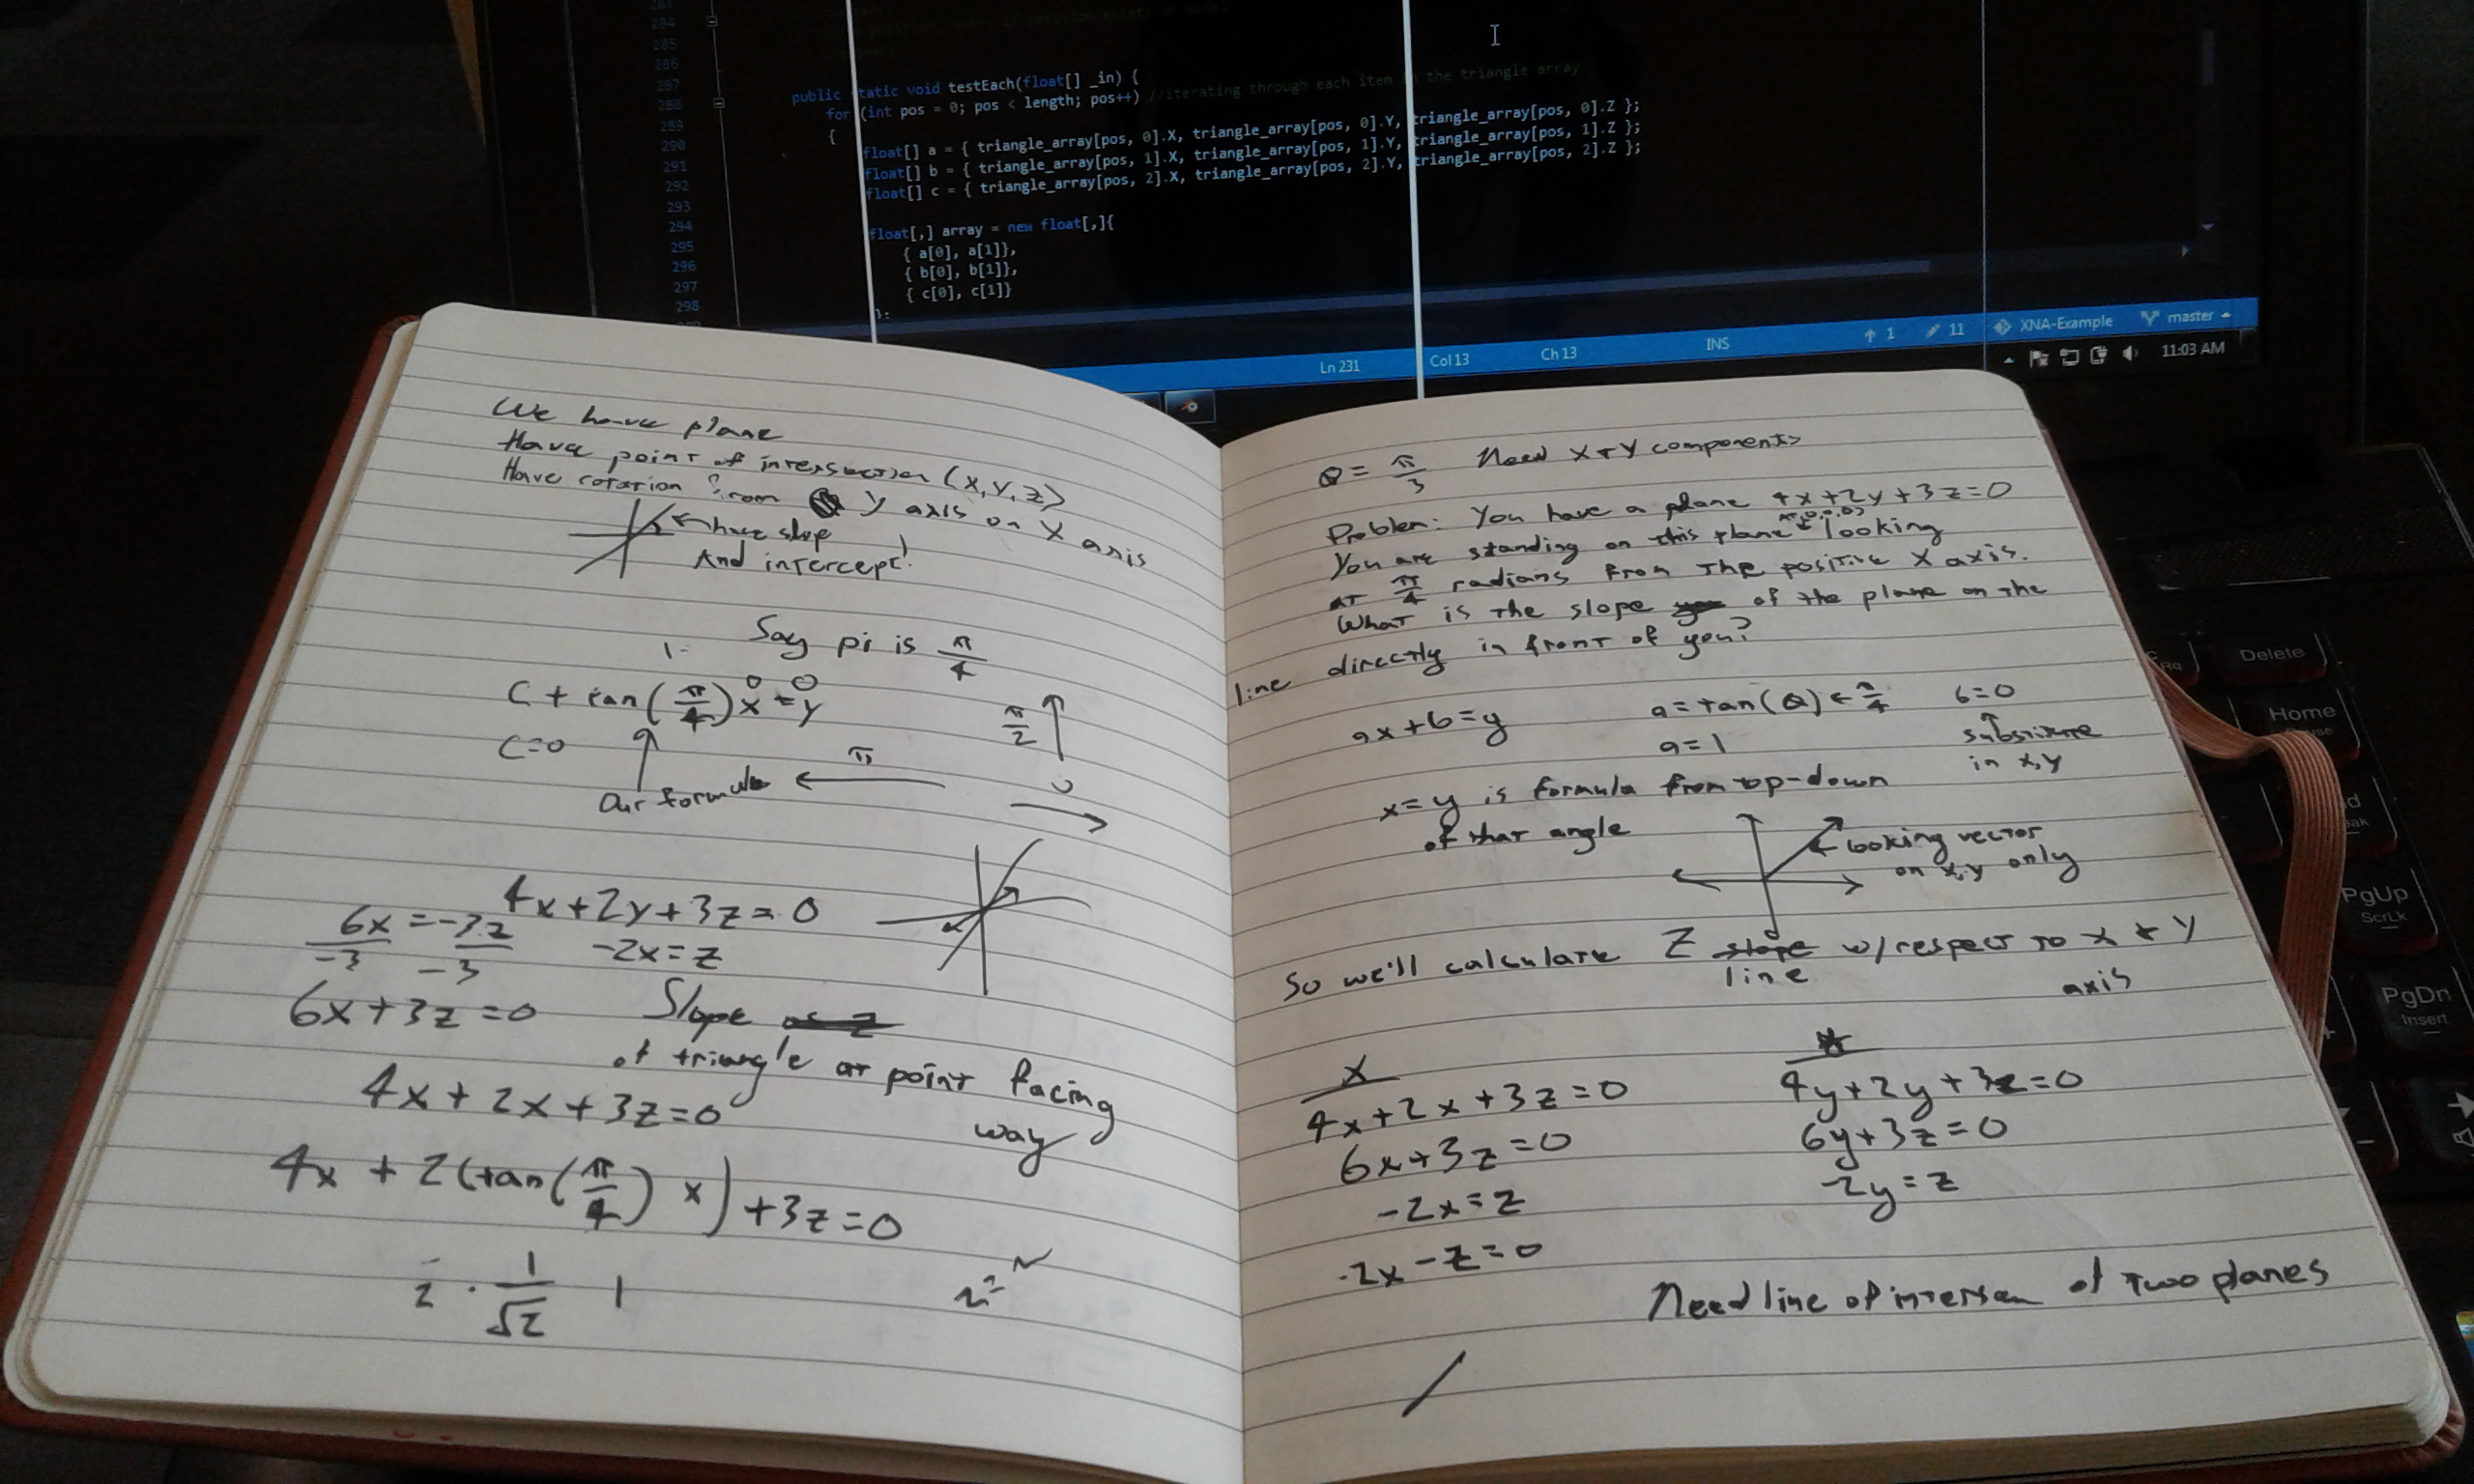 284
285
286
287
288
289
290
291
292
293
294
295
296
297
298
public static void testEach(float[] _in) {
for (int pos = 0; pos < length; pos++) //iterating through each item in the triangle array
{
float[] a = { triangle_array[pos, 0].X, triangle_array[pos, 0].Y, triangle_array[pos, 0].Z };
float[] b = { triangle_array[pos, 1].X, triangle_array[pos, 1].Y, triangle_array[pos, 1].Z };
float[] c = { triangle_array[pos, 2].X, triangle_array[pos, 2].Y, triangle_array[pos, 2].Z };
float[,] array = new float[,]{
{ a[0], a[1]},
{ b[0], b[1]},
{ c[0], c[1]}
};
Ln 231 Col 13 Ch 13 INS 1 11 XNA-Example master
11:03 AM
We have plane
Have point of intersection (x, y, z)
Have rotation from y axis on x axis
have slope
And intercept!
Say pi is π/4
C + tan(π/4)x = y
0 0
C=0
Our formula
π/2
π
0
4x+2y+3z=0
6x = -3z
-3 -3
-2x=z
6x+3z=0
Slope
of triangle at point facing
way
4x+2x+3z=0
4x + 2(tan(π/4) x) +3z=0
1/√2 1
θ = π/3 Need x+y components
Problem: You have a plane 4x+2y+3z=0
You are standing on this plane looking
at (0,0,0)
at π/4 radians from the positive x axis.
What is the slope of the plane on the
line directly in front of you?
ax+b=y
a=tan(θ) ← π/4
b=0
a=1
substitute
in x,y
x=y is formula from top-down
of that angle
looking vector
on x,y only
So we'll calculate Z slope w/respect to x + y
line
axis
x
4x+2x+3z=0
6x+3z=0
-2x=z
-2x-z=0
4y+2y+3z=0
6y+3z=0
-2y=z
Need line of of two planes
Delete
Home
PgUp
ScrLk
PgDn
Insert